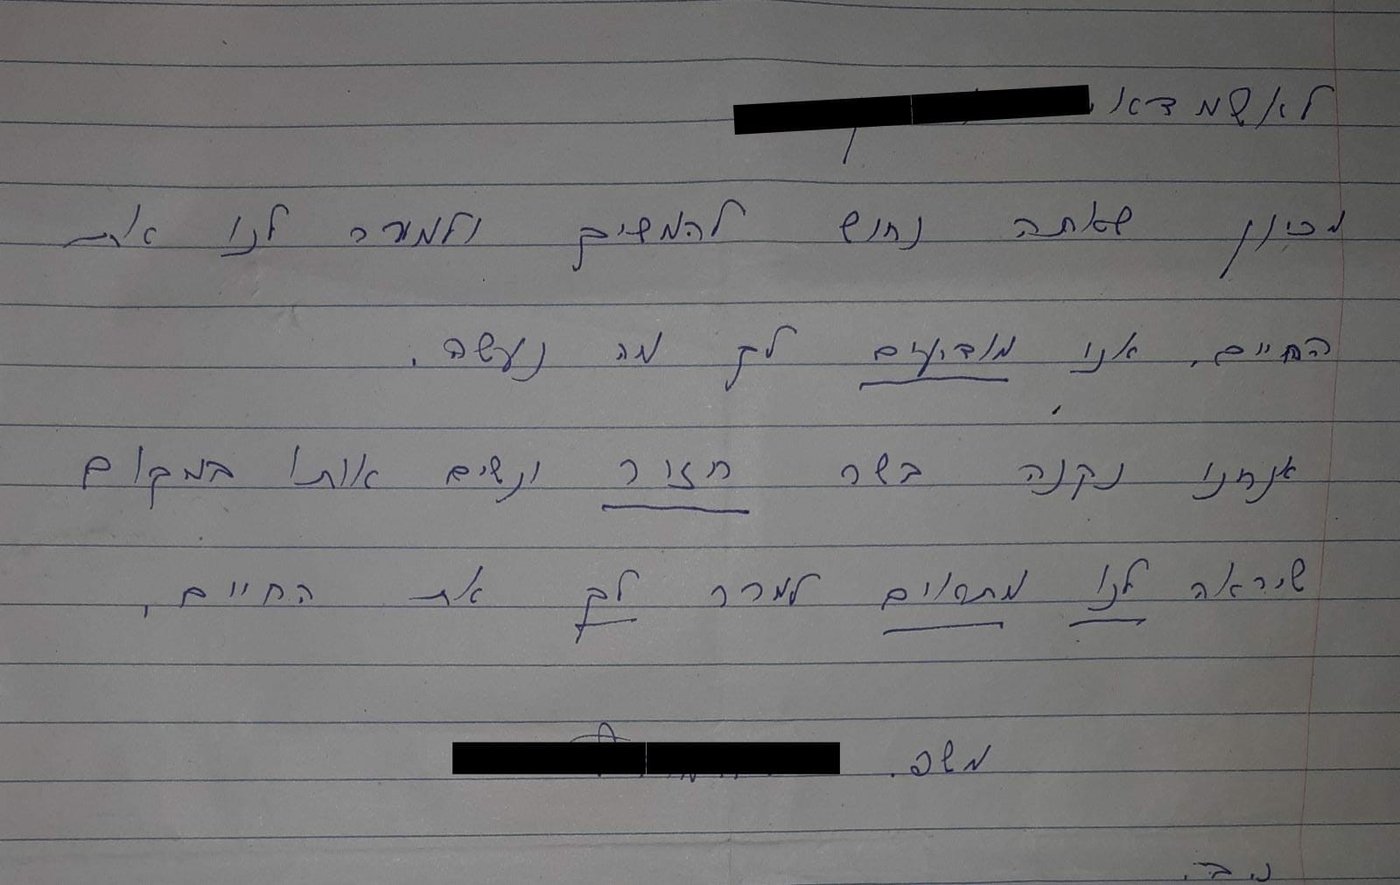 לאשמדאי
מכיוון שאתה נחוש להמשיך ולמרר לנו את
החיים, אנו מודיעים לך מה נעשה.
אנחנו נקנה בשר חזיר ונשים אותו במקום
שיראה לנו מתאים למרר לך את החיים.
משפ.
נ.ב.